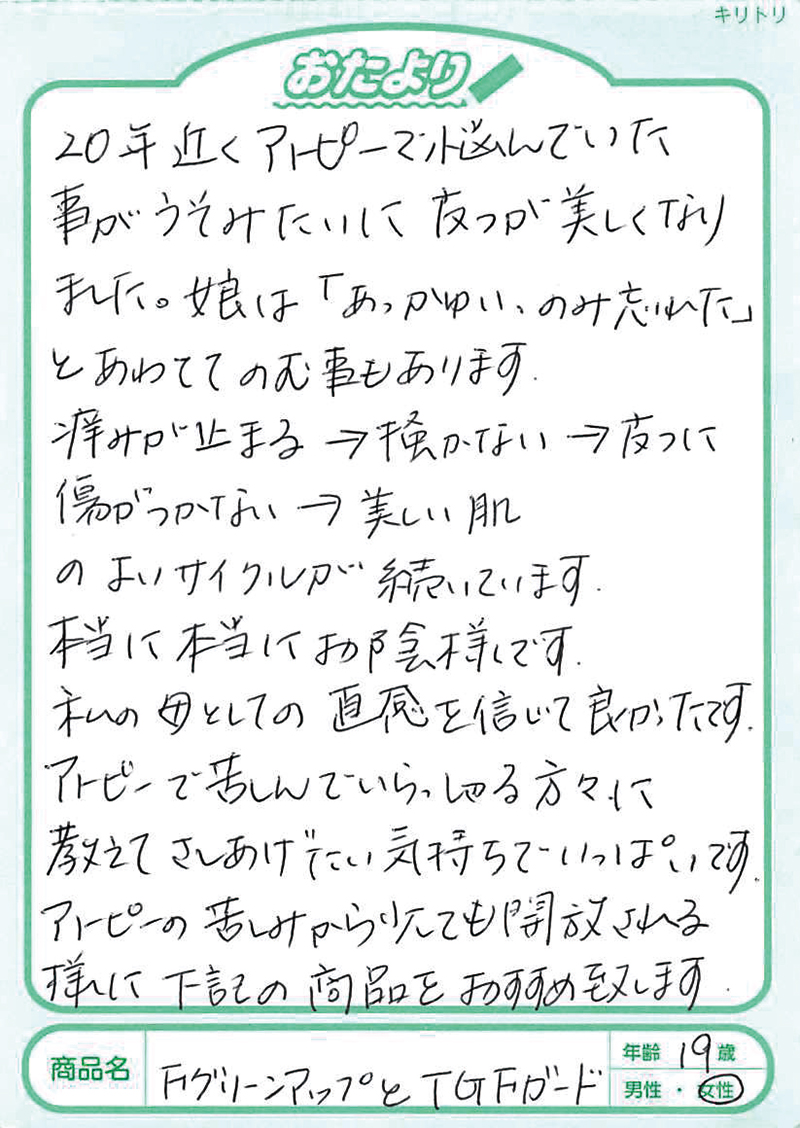 キリトリ
おたより
20年近くアトピーで悩んでいた
事がうそみたいに皮フが美しくなり
ました。娘は「あっかゆい、のみ忘れた」
とあわててのむ事もあります.
痒みが止まる→掻かない→皮フに
傷がつかない→美しい肌
のよいサイクルが続いています.
本当に本当にお陰様です.
私の母としての直感を信じて良かったです.
アトピーで苦しんでいらっしゃる方々に
教えてさしあげたい気持ちでいっぱいです.
アトピーの苦しみから少しでも開放される
様に下記の商品をおすすめ致します.
商品名 グリーンアップとTGFガード
年齢 19歳
男性・女性